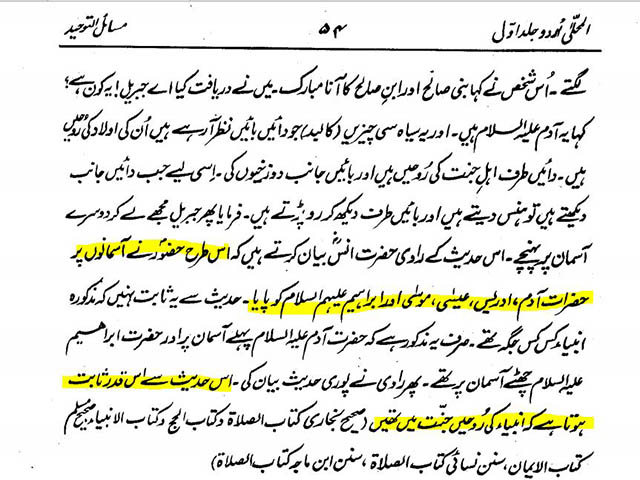 المحلّٰی اُردو جلد اوّل ۵۴ مسائل التوحید
لگتے ۔ اُس شخص نے کہا بنی صالح اور ابنِ صالح کا آنا مبارک ۔ میں نے دریافت کیا اے جبریل! یہ کون ہے؟
کہا یہ آدم علیہ السلام ہیں ۔ اور یہ سیاہ سی چیزیں (کالبد) جو دائیں بائیں نظر آرہے ہیں اُن کی اولاد کی رُوحیں
ہیں ۔ دائیں طرف اہلِ جنت کی رُوحیں ہیں اور بائیں جانب دوزخیوں کی ۔ اِسی لیے جب دائیں جانب
دیکھتے ہیں تو ہنس دیتے ہیں اور بائیں طرف دیکھ کر رو پڑتے ہیں ۔ فرمایا پھر جبریل مجھے لے کر دوسرے
آسمان پر پہنچے ۔ اس حدیث کے راوی حضرت انسؓ بیان کرتے ہیں کہ اس طرح حضورؐ نے آسمانوں پر
حضرات آدم ، ادریس ، عیسٰی ، موسٰی اور ابراہیم علیہم السلام کو پایا ۔ حدیث سے یہ ثابت نہیں کہ مذکورہ
انبیاء کس کس جگہ تھے ۔ صرف یہ مذکور ہے کہ حضرت آدم علیہ السلام پہلے آسمان پر اور حضرت ابراھیم
علیہ السلام چھٹے آسمان پر تھے ۔ پھر راوی نے پوری حدیث بیان کی ۔ اس حدیث سے اس قدر ثابت
ہوتا ہے کہ انبیاء کی رُوحیں جنّت میں تھیں (صحیح بخاری کتاب الصلاۃ و کتاب الحج و کتاب الانبیاء ، صحیح مسلم
کتاب الایمان ، سنن نسائی کتاب الصلاۃ ، سنن ابن ماجہ کتاب الصلاۃ)